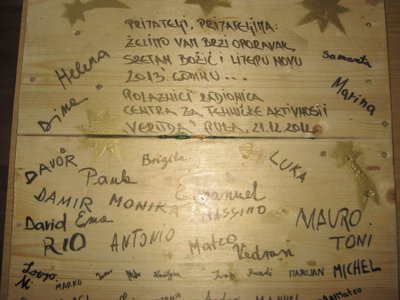 PRIJATELJI, PRIJATELJIMA:
ŽELIMO VAM BRZI OPORAVAK,
SRETAN BOŽIĆ I LIJEPU NOVU
2013. GODINU...
Helena
Samanta
Marina
Dime
POLAZNICI RADIONICA
CENTRA ZA TEHNIČKE AKTIVNOSTI
VERITDA PULA, 21.12.2012.
DAVOR
Brigita
LUKA
Paula
Emanuel
DAMIR
MONIKA
MASSIMO
David
Ema
MAURO
RIO
ANTONIO
Mateo
Vedran
TONI
Lovro
MARKO
MARIJAN
MICHEL